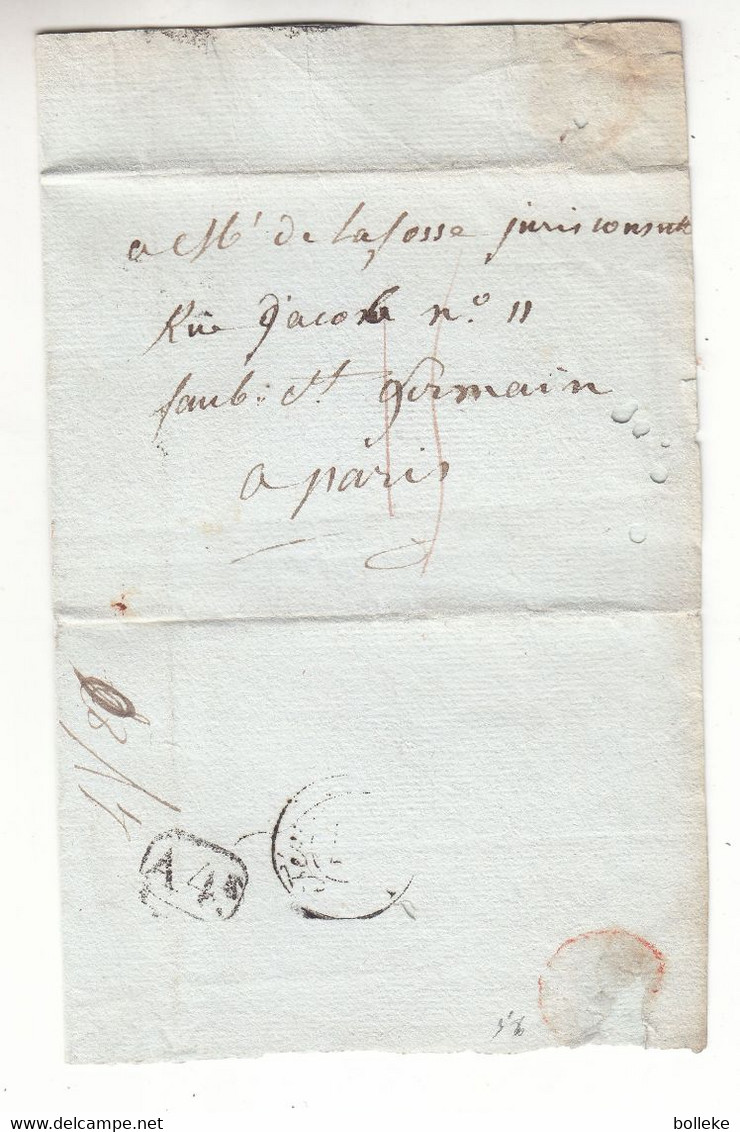 a Mr de lafosse jurisconsulte
Rüe Jacob n.o 11
faub: St germain
a paris
A.4e
bolleke